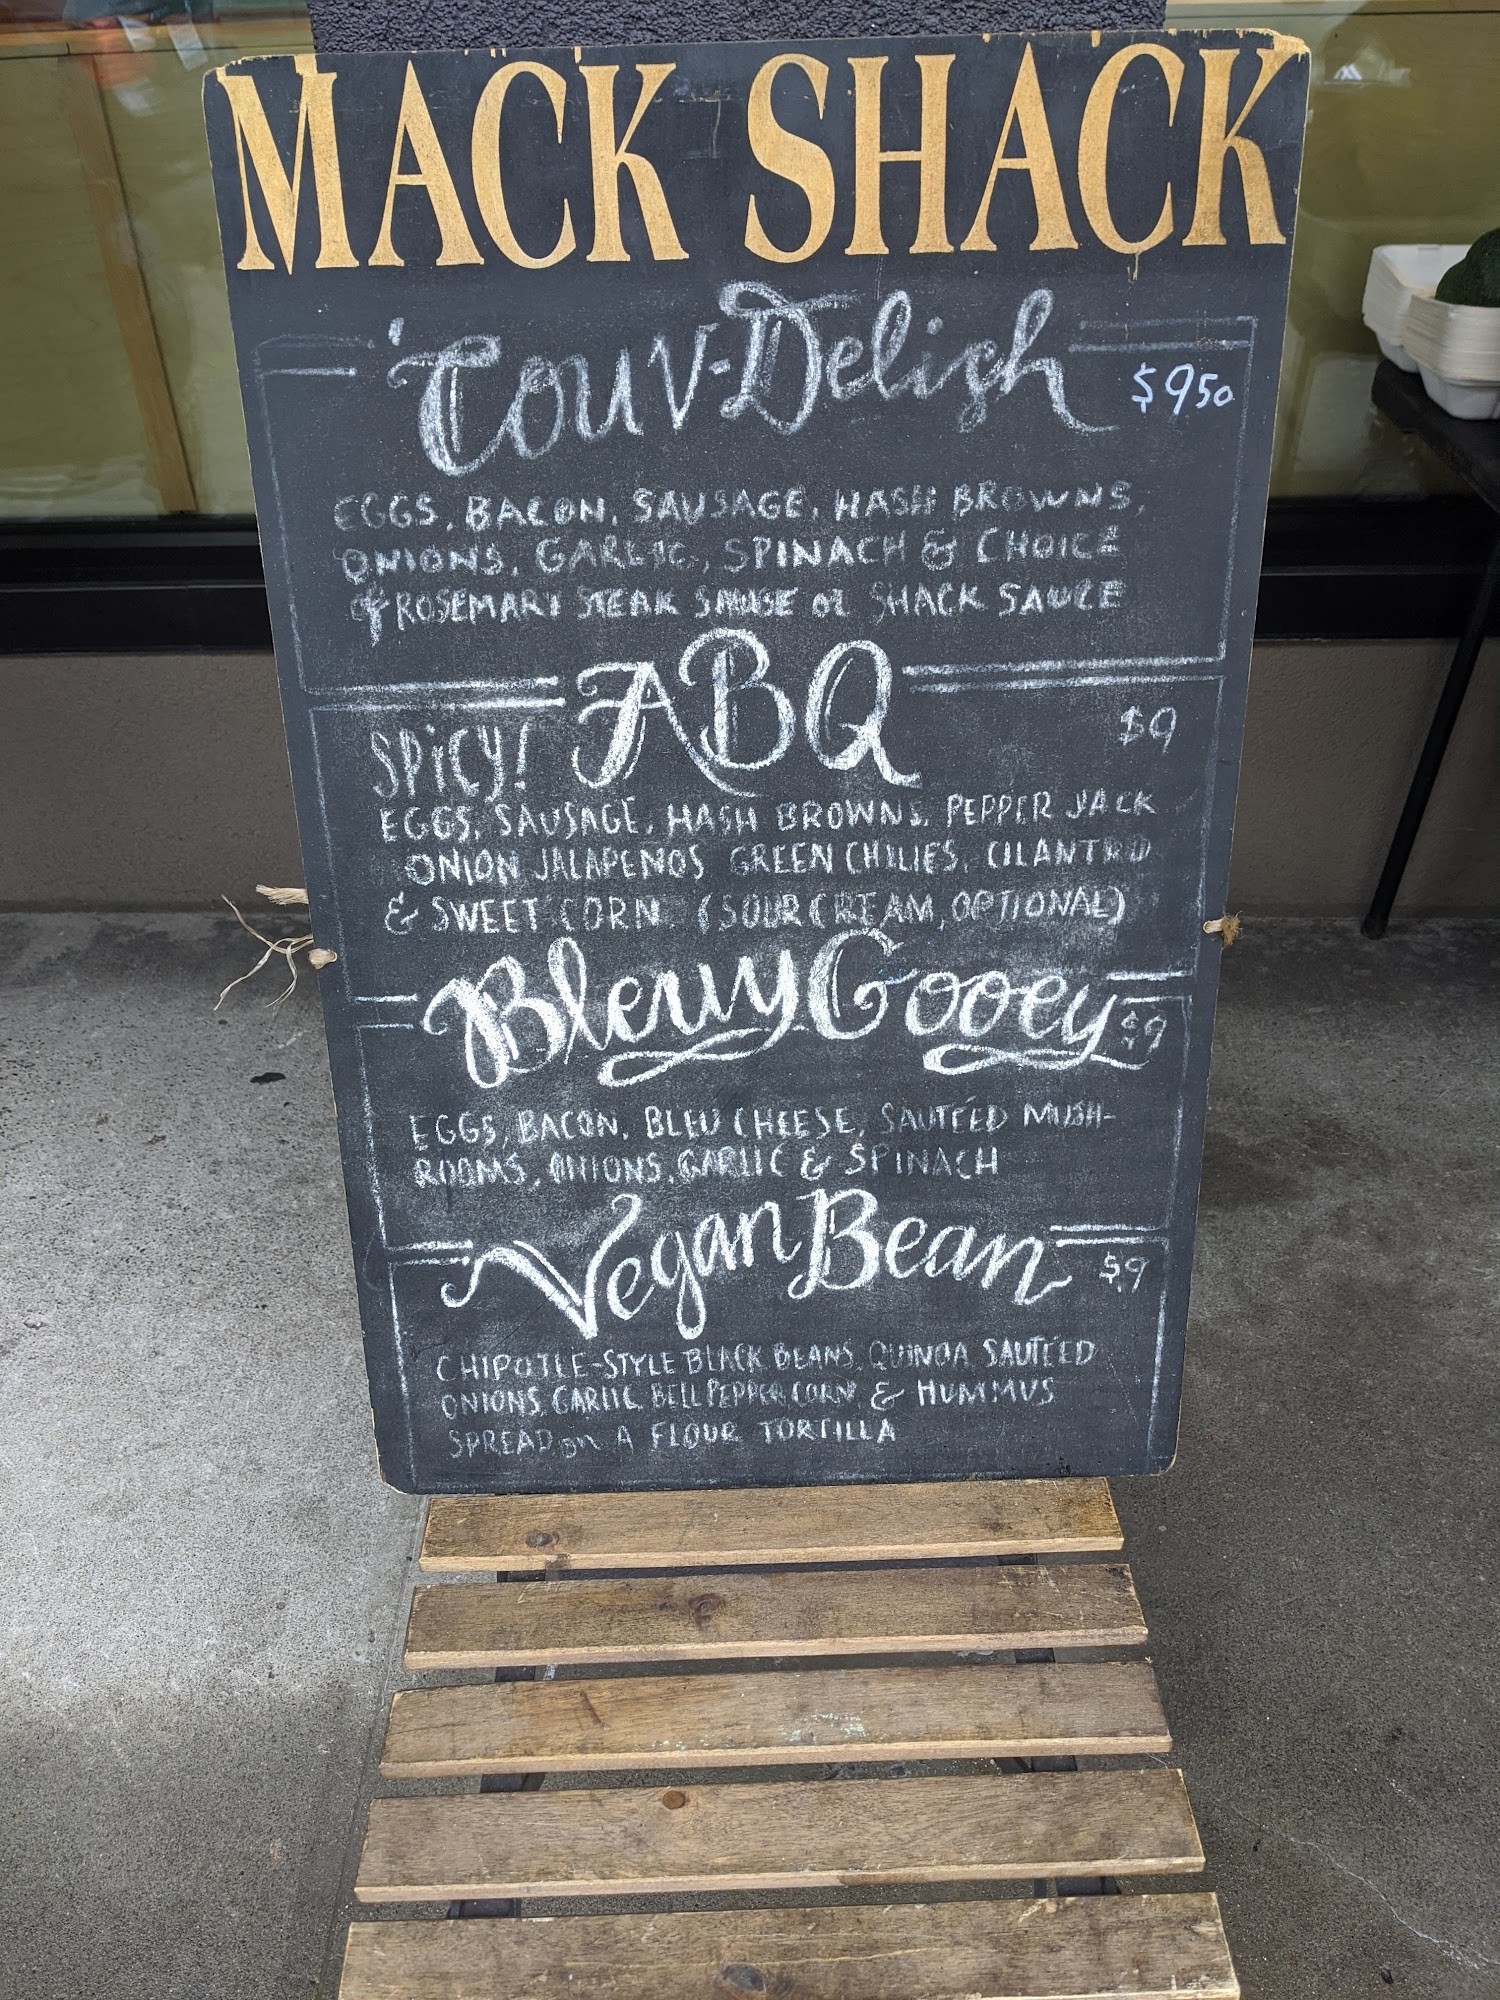 MACK SHACK
'Couv-Delish
$950
EGGS, BACON, SAUSAGE, HASH BROWNS,
ONIONS, GARLIC, SPINACH & CHOICE
of ROSEMARY STEAK SAUSE OR SHACK SAUCE
SPiCY! ABQ
$9
EGGS, SAUSAGE, HASH BROWNS, PEPPER JACK
ONION JALAPENOS GREEN CHILIES, CILANTRO
& SWEET CORN. (SOUR CREAM, OPTIONAL)
Bleuy Gooey $9
EGGS, BACON, BLEU CHEESE, SAUTÉED MUSH-
ROOMS, ONIONS, GARLIC & SPINACH
Vegan Bean $9
CHIPOTLE-STYLE BLACK BEANS, QUINOA, SAUTÉED
ONIONS, GARLIC, BELL PEPPER, CORN, & HUMMUS
SPREAD on A FLOUR TORTILLA